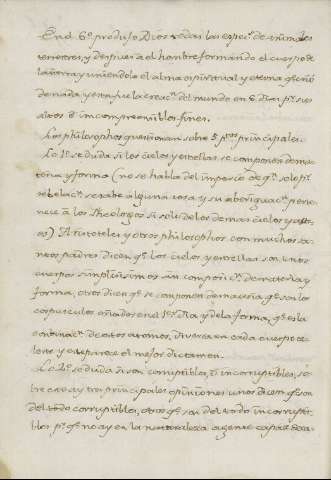 En el 6º. produjo Dios todas las espec.s de animales
terrestres, y despues a el hombre formando el cuerpo de
la tierra y uniendole el alma espiritual y eterna q.e crió
de nada y esta fue la creac.n del mundo en 6 dias p.r sus
altos é incomprensibles fines.
Los philosophos questionan sobre 5 p.tos principales.
Lo 1º. se duda si los cielos y estrellas se componen de ma-
teria y forma (no se habla del impereo de q.n solo p.r
rebelac.n se sabe alguna cosa y su aberiguac.n perte-
nece á los Theologos si solo de los demas cielos y ast-
ros) Aristoteles y otros philosophos con muchos sa-
ntos padres dicen q.e los cielos y estrellas son unos
cuerpos simplisimos sin composic.n de materia y
forma, otros dicen q.e se componen de materia q.e son los
corpusculos criados en el 1er. dia y de la forma, q.e es la
combinac.n de estos atomos, diversa en cada cuerpo ce-
leste y este parece el mejor dictamen.
Lo 2º. se duda si son corruptibles, ó incorruptibles, so-
bre esto ay tres principales opiniones unos dicen q.e son
del todo corruptibles, otros q.e son del todo incorrupti-
bles p.r q.e no ay en la naturaleza agente capaz de